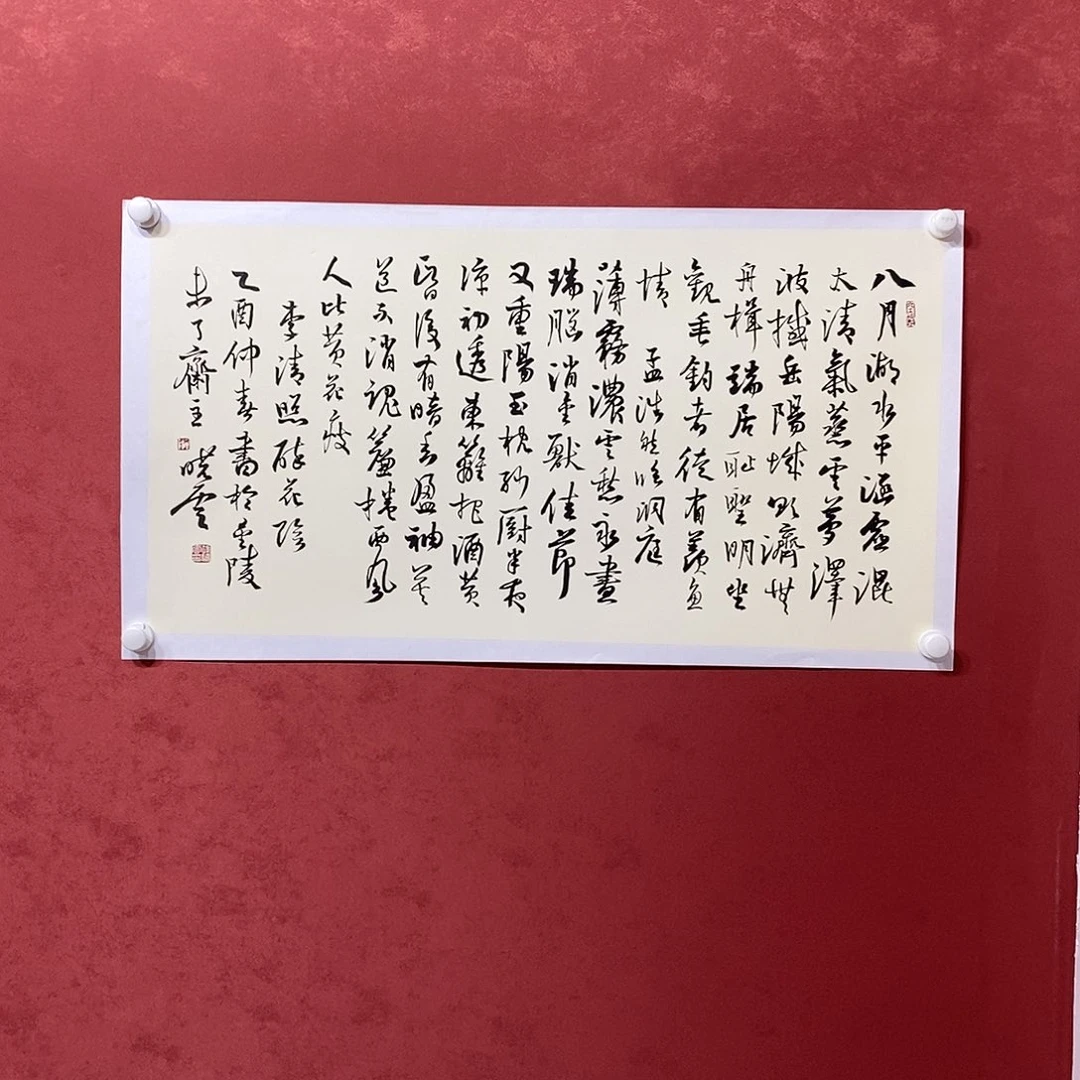 八月湖水平涵虚混
太清氣蒸雲夢澤
波撼岳陽城欲濟無
舟楫端居耻聖明坐
觀垂釣者徒有羨魚
情　孟浩然临洞庭
薄霧濃雲愁永晝
瑞腦消金獸佳節
又重陽玉枕紗厨半夜
凉初透東籬把酒黄
昏後有暗香盈袖莫
道不消魂簾捲西風
人比黄花瘦
李清照醉花陰
乙酉仲春書於陵
未了齋主
曉雲